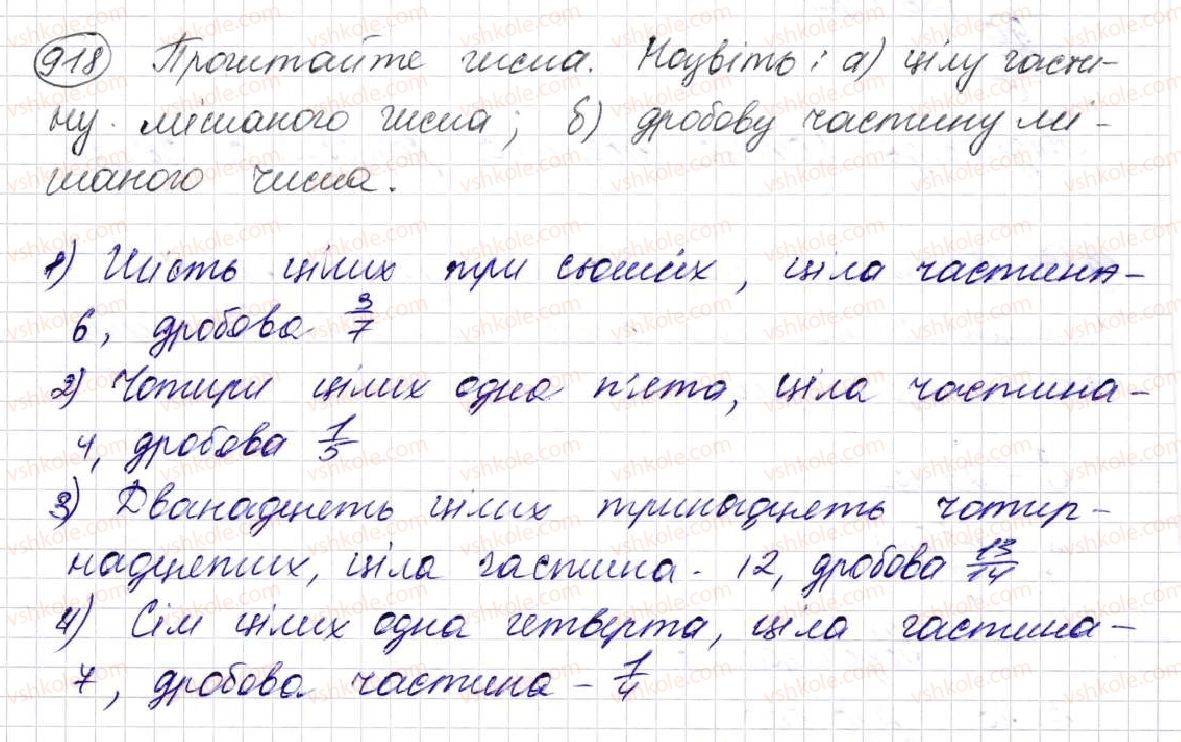 918 Прочитайте числа. Назвіть: а) цілу части-
ну мішаного числа; б) дробову частину мі-
шаного числа.
1) Шість цілих три сьомих, ціла частина -
6, дробова 3/7
2) Чотири цілих одна п'ята, ціла частина -
4, дробова 1/5
3) Дванадцять цілих тринадцять чотир-
надцятих, ціла частина - 12, дробова 13/14
4) Сім цілих одна четверта, ціла частина -
7, дробова частина - 1/4